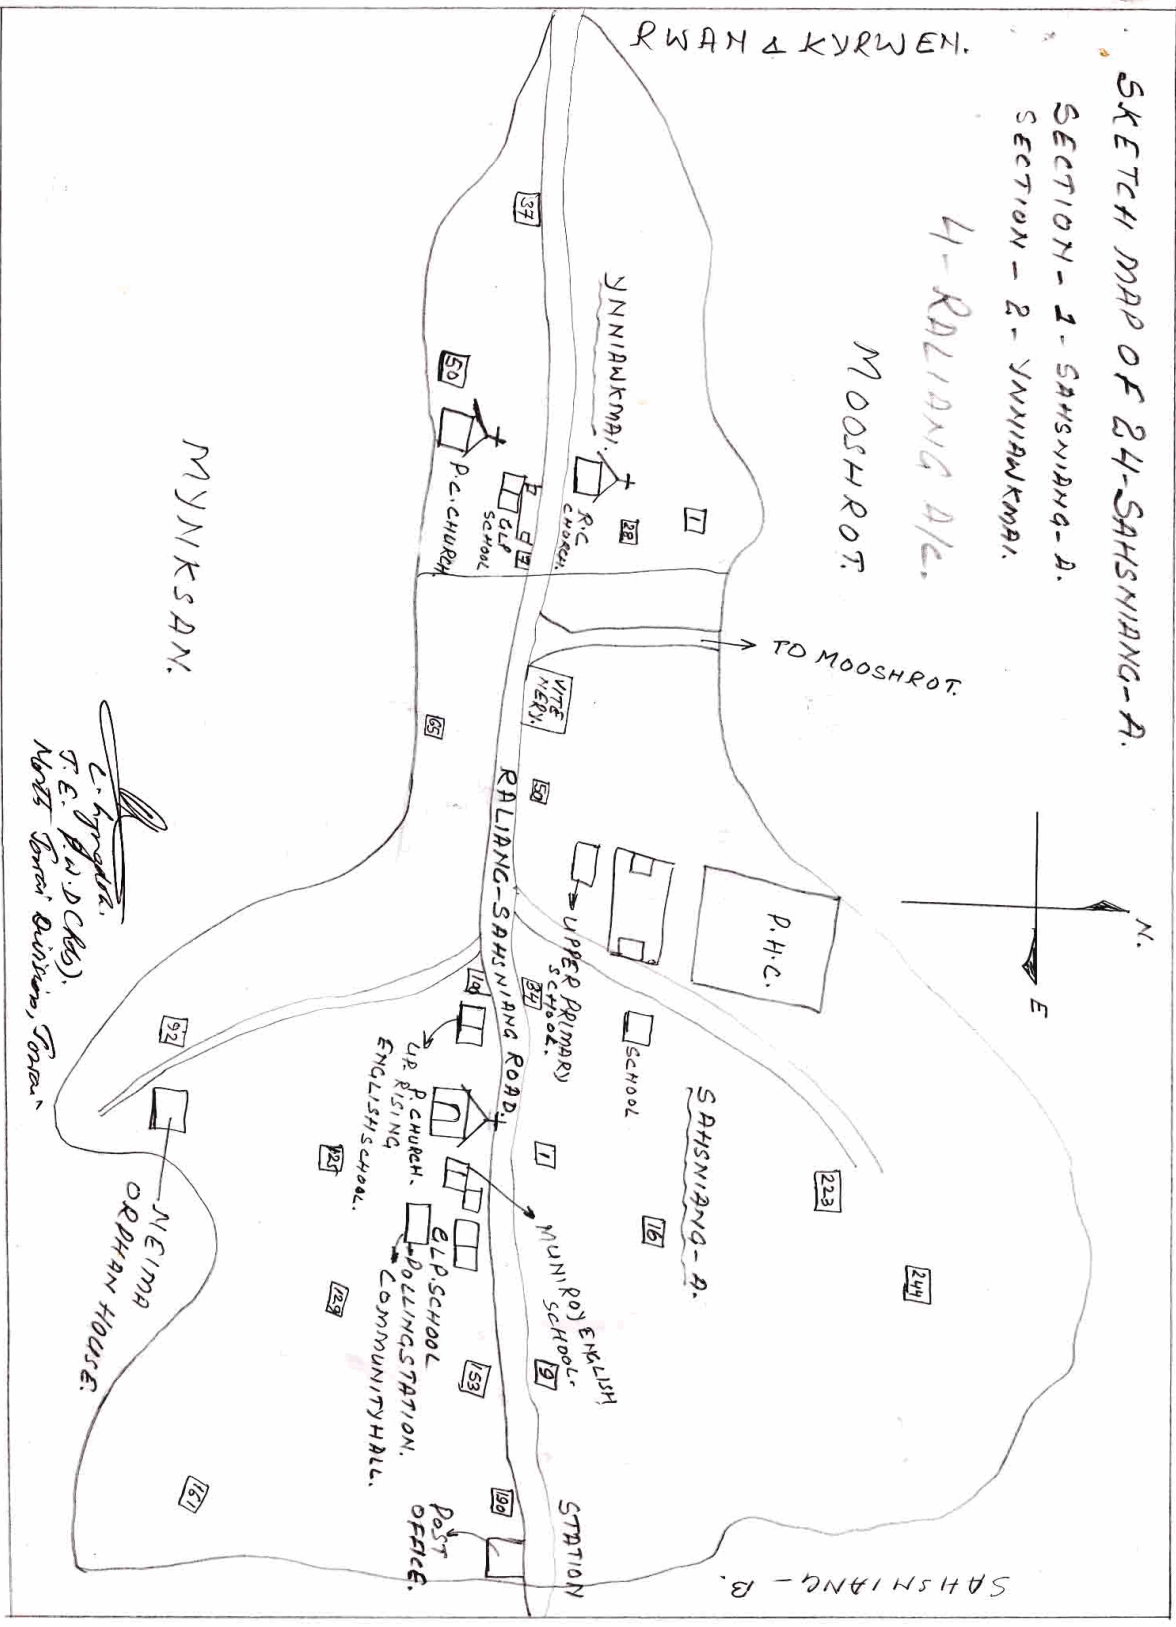 SKETCH MAP OF 24-SAHSNIANG-A.
SECTION-1-SAHSNIANG-A.
SECTION-2-YNNIAWKMAI.
4-RALIANG A/C.
RWAN & KYRWEN.
MOOSHROT.
N.
E
TO MOOSHROT.
YNNIAWKMAI.
37
50
P.C. CHURCH.
GLP
SCHOOL
R.C
CHURCH.
28
1
MYNKSAN.
VITE
NERY.
65
50
RALIANG-SAHSNIANG ROAD.
UPPER PRIMARY
SCHOOL.
P.H.C.
SCHOOL
SAHSNIANG-A.
84
92
NEIMA
ORPHAN HOUSE.
UP. RISING
ENGLISH SCHOOL.
P. CHURCH.
1
16
223
244
125
129
MUNIROY ENGLISH
SCHOOL.
GLP. SCHOOL
POLLING STATION.
COMMUNITY HALL.
153
9
161
190
POST
OFFICE.
STATION
SAHSNIANG-B.
J.E. P.W.D (Rds).
North Jowai Division, Jowai